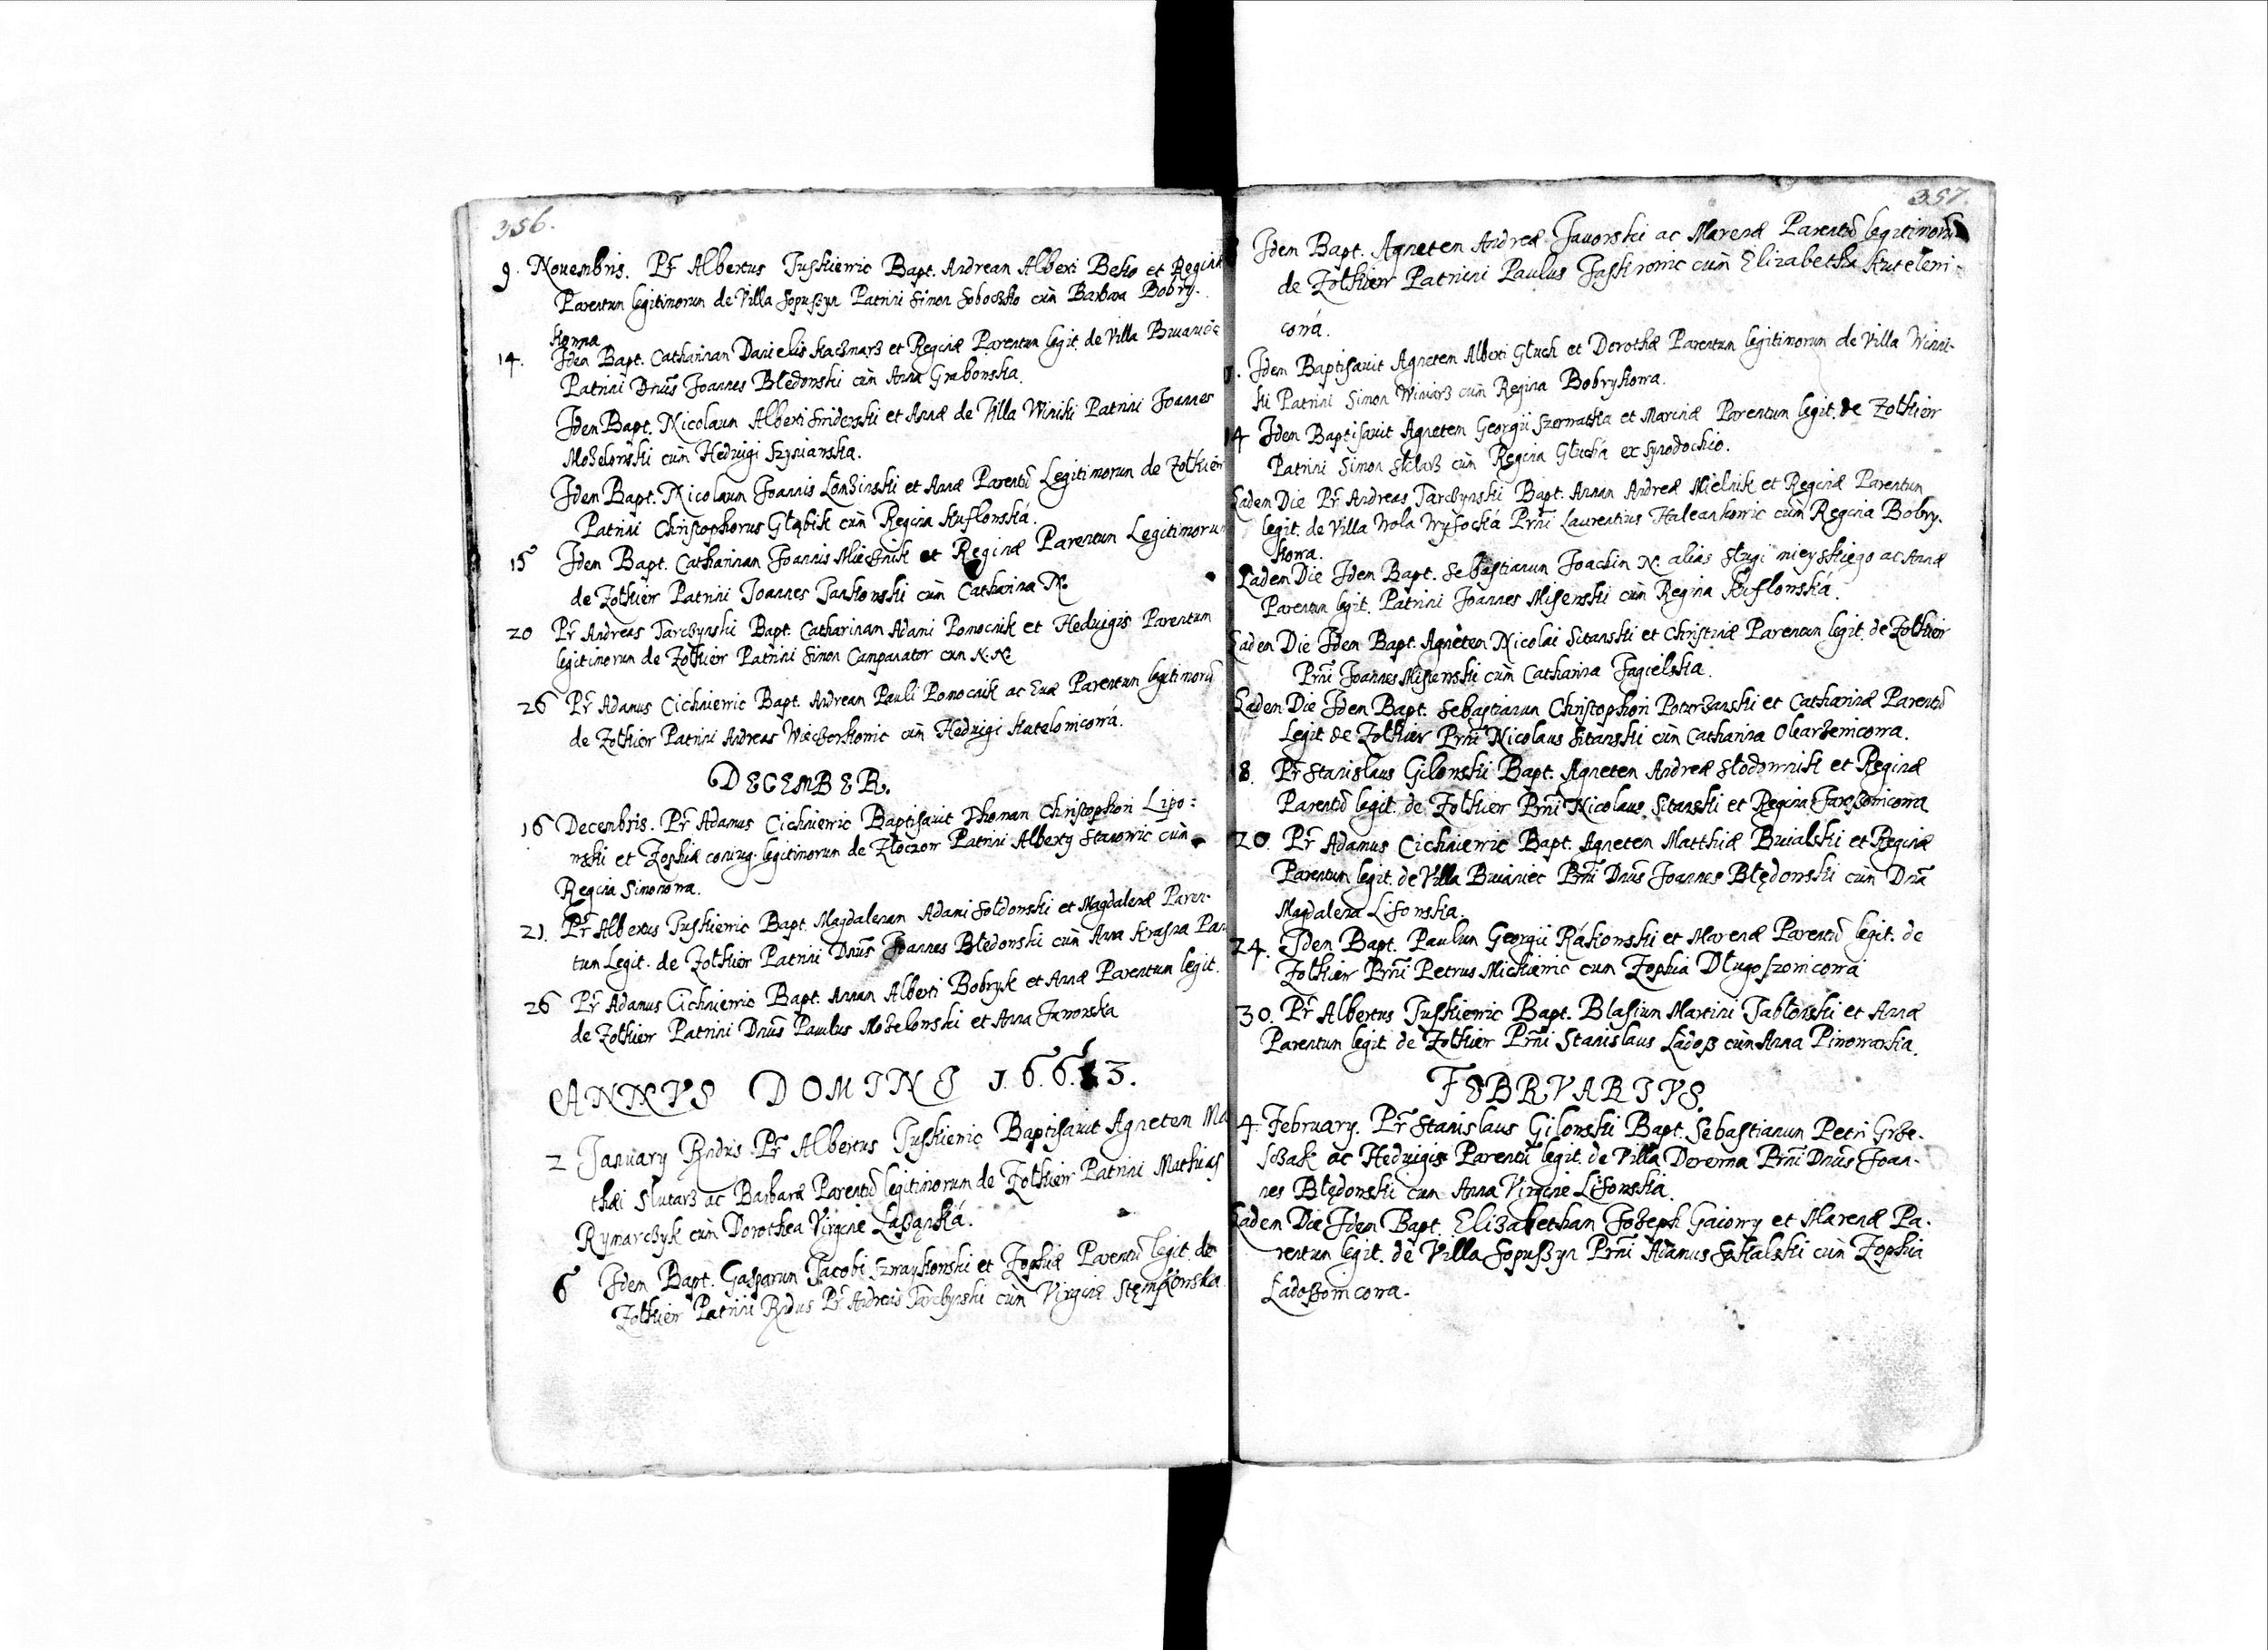 356.
9. Nouembris. Pr Albertus Juskiewic Bapt. Andream Alberti Beko et Reginæ
Parentum legitimorum de Villa Sopuszyn Patrini Simon Soboczko cum Barbara Bobry-
kowna
14. Idem Bapt. Catharinam Danielis Kacznarz et Reginæ Parentum legit. de Villa
Patrini Dnus Joannes Błędowski cum Anna Grabowska.
Idem Bapt. Nicolaum Alberti et Annæ de Villa Winiki Patrini Joannes
Mozelowski cum Hedvigi
Idem Bapt. Nicolaum Joannis Łomzinski et Annæ Parentũ Legitimorum de Zołkiew
Patrini Christophorus Głąbik cum Regina Kuflowská.
15 Idem Bapt. Catharinam Joannis Miecznik et Reginæ Parentum Legitimorum
de Zołkiew Patrini Joannes Jankowski cum Catharina N.
20 Pr Andreas Tarczynski Bapt. Catharinam Adami Pomocnik et Hedvigis Parentum
legitimorum de Zołkiew Patrini Simon Campanator cum N. N.
26 Pr Adamus Cichniewic Bapt. Andream Pauli Pomocnik ac Euæ Parentum legitimorũ
de Zołkiew Patrini Andreas Wieczorkowic cum Hedvigi Katelowicowá.
DECEMBER.
16 Decembris. Pr Adamus Cichniewic Baptisauit Thomam Christophori Lipo=
wski et Zophiæ coniug. legitimorum de Złoczow Patrini Alberty Stawowic cum
Regina Simonowa.
21. Pr Albertus Juskiewic Bapt. Magdalenam Adami Sołdowski et Magdalenæ Paren-
tum Legit. de Zołkiew Patrini Dnus Joannes Błędowski cum Anna Krasna
26 Pr Adamus Cichniewic Bapt. Annam Alberti Bobryk et Annæ Parentum legit.
de Zołkiew Patrini Dnus Paulus Mozelowski et Anna Jaworska
ANNVS DOMINI 1.6.6.3.
2 January Rndus Pr Albertus Juskiewic Baptisauit Agnetem Ma
thæi Slutarz ac Barbaræ Parentũ legitimorum de Zołkiew Patrini Mathias
Rymarczyk cum Dorothea Virgine
6 Idem Bapt. Gasparum Jacobi Szwaykowski et Zophiæ Parentũ legit. de
Zołkiew Patrini Rndus Pr Andreas Tarczynski cum Virgine Stempkowska.
357.
Idem Bapt. Agnetem Andreæ Jauorski ac Marenæ Parentũ legitimorũ
de Zołkiew Patrini Paulus Jaskrowic cum Elizabetha Kutelewi-
cowá.
Idem Baptisauit Agnetem Alberti Głuch et Dorothæ Parentum legitimorum de Villa Winni-
ki Patrini Simon Winiarz cum Regina Bobrykowa.
14 Idem Baptisauit Agnetem Georgii Szewratka et Marinæ Parentum legit. de Zołkiew
Patrini Simon Sklarz cum Regina Głuchá ex Synodochio.
Eadem Die Pr Andreas Tarczynski Bapt. Annam Andreæ Mielnik et Reginæ Parentum
legit. de Villa Wola Wysocká Prni Laurentius cum Regina Bobry-
kowa.
Eadem Die Idem Bapt. Sebastianum Joachim N. alias Sługi mieyskiego ac Annæ
Parentum legit. Patrini Joannes Misewski cum Regina Kuflowská.
Eadem Die Idem Bapt. Agnetem Nicolai Sitanski et Christinæ Parentum legit. de Zołkiew
Prni Joannes Misiewski cum Catharina Jagielska.
Eadem Die Idem Bapt. Sebastianum Christophori Potorzanski et Catharinæ Parentũ
Legit de Zołkiew Prni Nicolaus Sitanski cum Catharina Olearzewicowa.
18. Pr Stanislaus Gilowski Bapt. Agnetem Andreæ Słodownik et Reginæ
Parentũ legit. de Zołkiew Prni Nicolaus Sitanski et Regina Jaroszowicowa
20. Pr Adamus Cichniewic Bapt. Agnetem Matthiæ Bruialski et Reginæ
Parentum legit. de Villa Bruianiec Prni Dnus Joannes Błędowski cum Dna
Magdalena Lisowska.
24. Idem Bapt. Paulum Georgii Rákowski et Marenæ Parentũ legit. de
Zołkiew Prni Petrus Mickiewic cum Zophia Długoszowicowá
30. Pr Albertus Juskiewic Bapt. Blasium Martini Jabłonski et Annæ
Parentum legit de Zołkiew Prni Stanislaus Ładosz cum Anna Piwowarka.
FEBRVARIVS.
4 February. Pr Stanislaus Gilowski Bapt. Sebastianum Petri Grze-
sczak ac Hedvigis Parentũ legit. de Villa Derewna Prni Dnus Joan-
nes Błędowski cum Anna Virgine Lisowská.
Eadem Die Idem Bapt. Elizabetham Jozeph Gaiowy et Marenæ Pa-
rentum legit. de Villa Sopuszyn Prni Adamus Skalski cum Zophia
Ładoszowicowa.